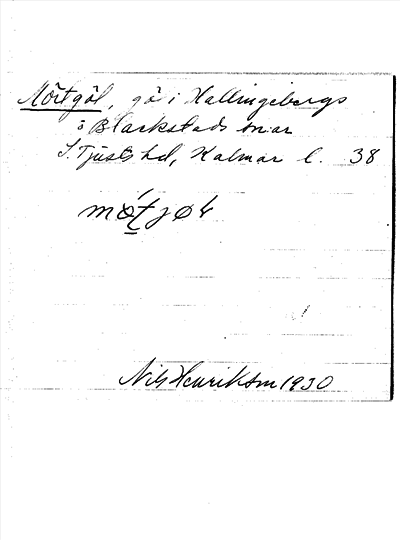 Mörtgöl, gö i Hallingebergs
o Blackstads snar
S. Tjusts hd, Kalmar l. 38
Nils Henrikson 1930